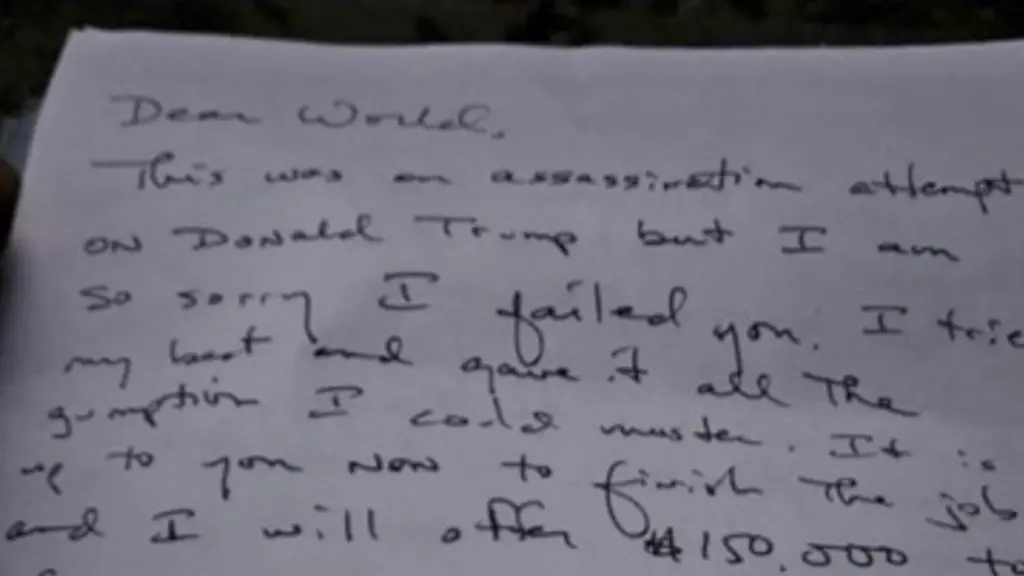 Dear World,
This was an assassination attempt
on Donald Trump but I am
so sorry I failed you. I trie
my best and gave it all the
gumption I could muster. It is
up to you now to finish the job
and I will offer $150,000 to